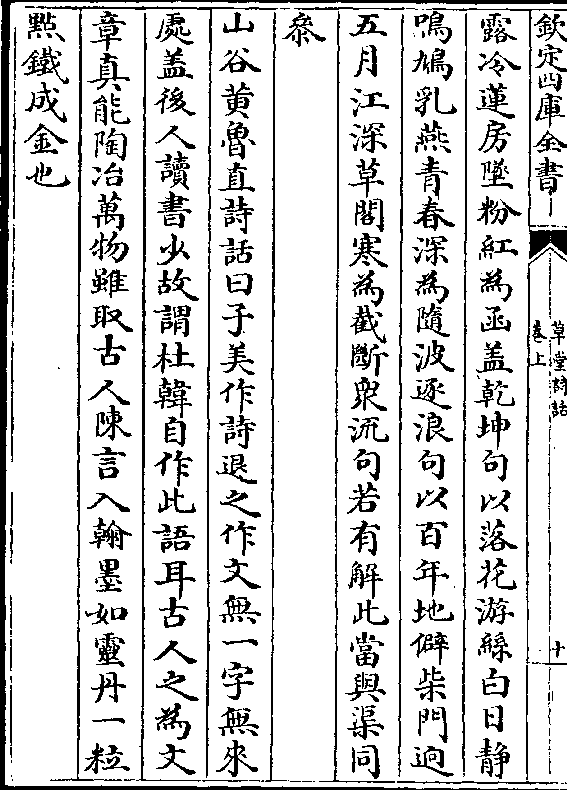 欽定四庫全書
草堂詩話
卷上
十
露冷蓮房墜粉紅為函盖乾坤句以落花游絲白日静
鳴鳩乳燕青春深為隨波逐浪句以百年地僻柴門迥
五月江深草閣寒為截斷衆流句若有解此當與渠同
叅
山谷黄魯直詩話曰子美作詩退之作文無一字無來
處盖後人讀書少故謂杜韓自作此語耳古人之為文
章真能陶冶萬物雖取古人陳言入翰墨如靈丹一粒
點鐵成金也